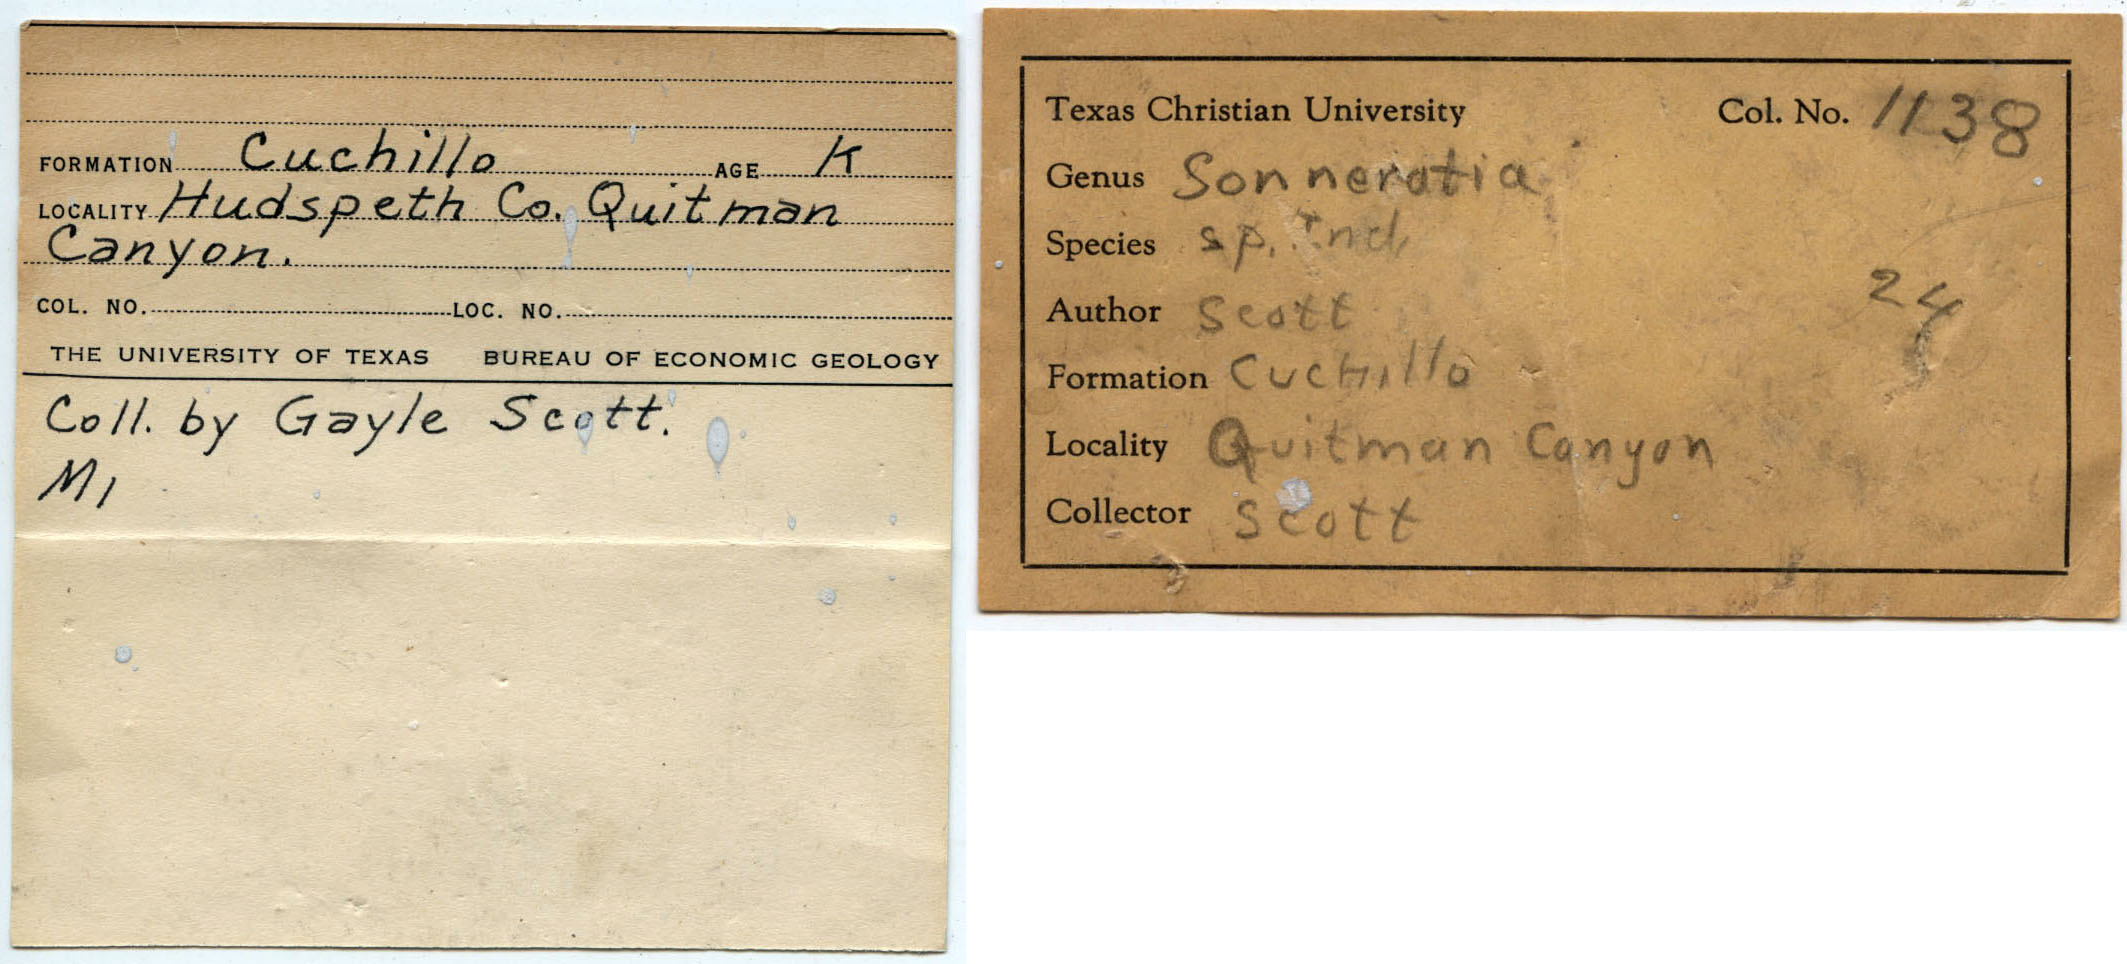 FORMATION Cuchillo AGE K
LOCALITY Hudspeth Co. Quitman
Canyon.
COL. NO. LOC. NO.
THE UNIVERSITY OF TEXAS BUREAU OF ECONOMIC GEOLOGY
Coll. by Gayle Scott.
M1
Texas Christian University Col. No. 1138
Genus Sonneratia
Species sp. Ind.
24
Author Scott
Formation Cuchillo
Locality Quitman Canyon
Collector Scott